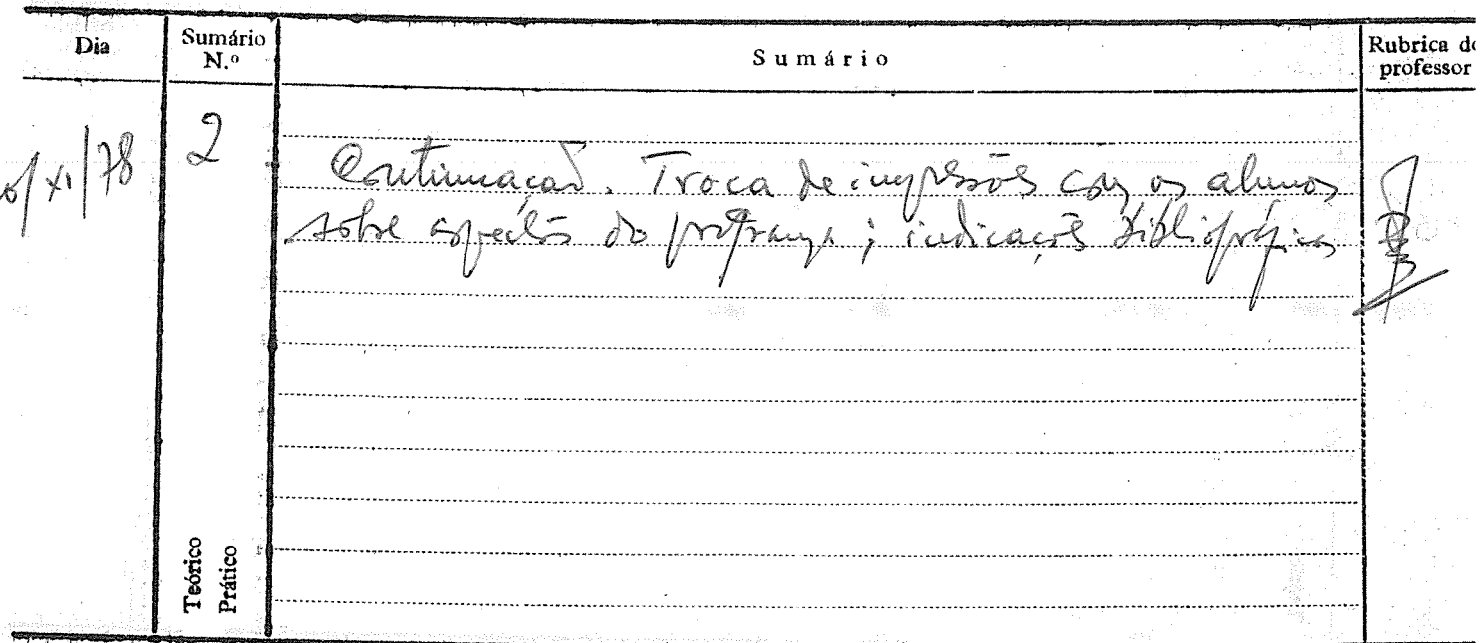 Dia
Sumário N.º
Sumário
Rubrica do professor
/XI/78
2
Continuação. Troca de impressões com os alunos
sobre aspectos do programa; indicações bibliográficas
Teórico
Prático